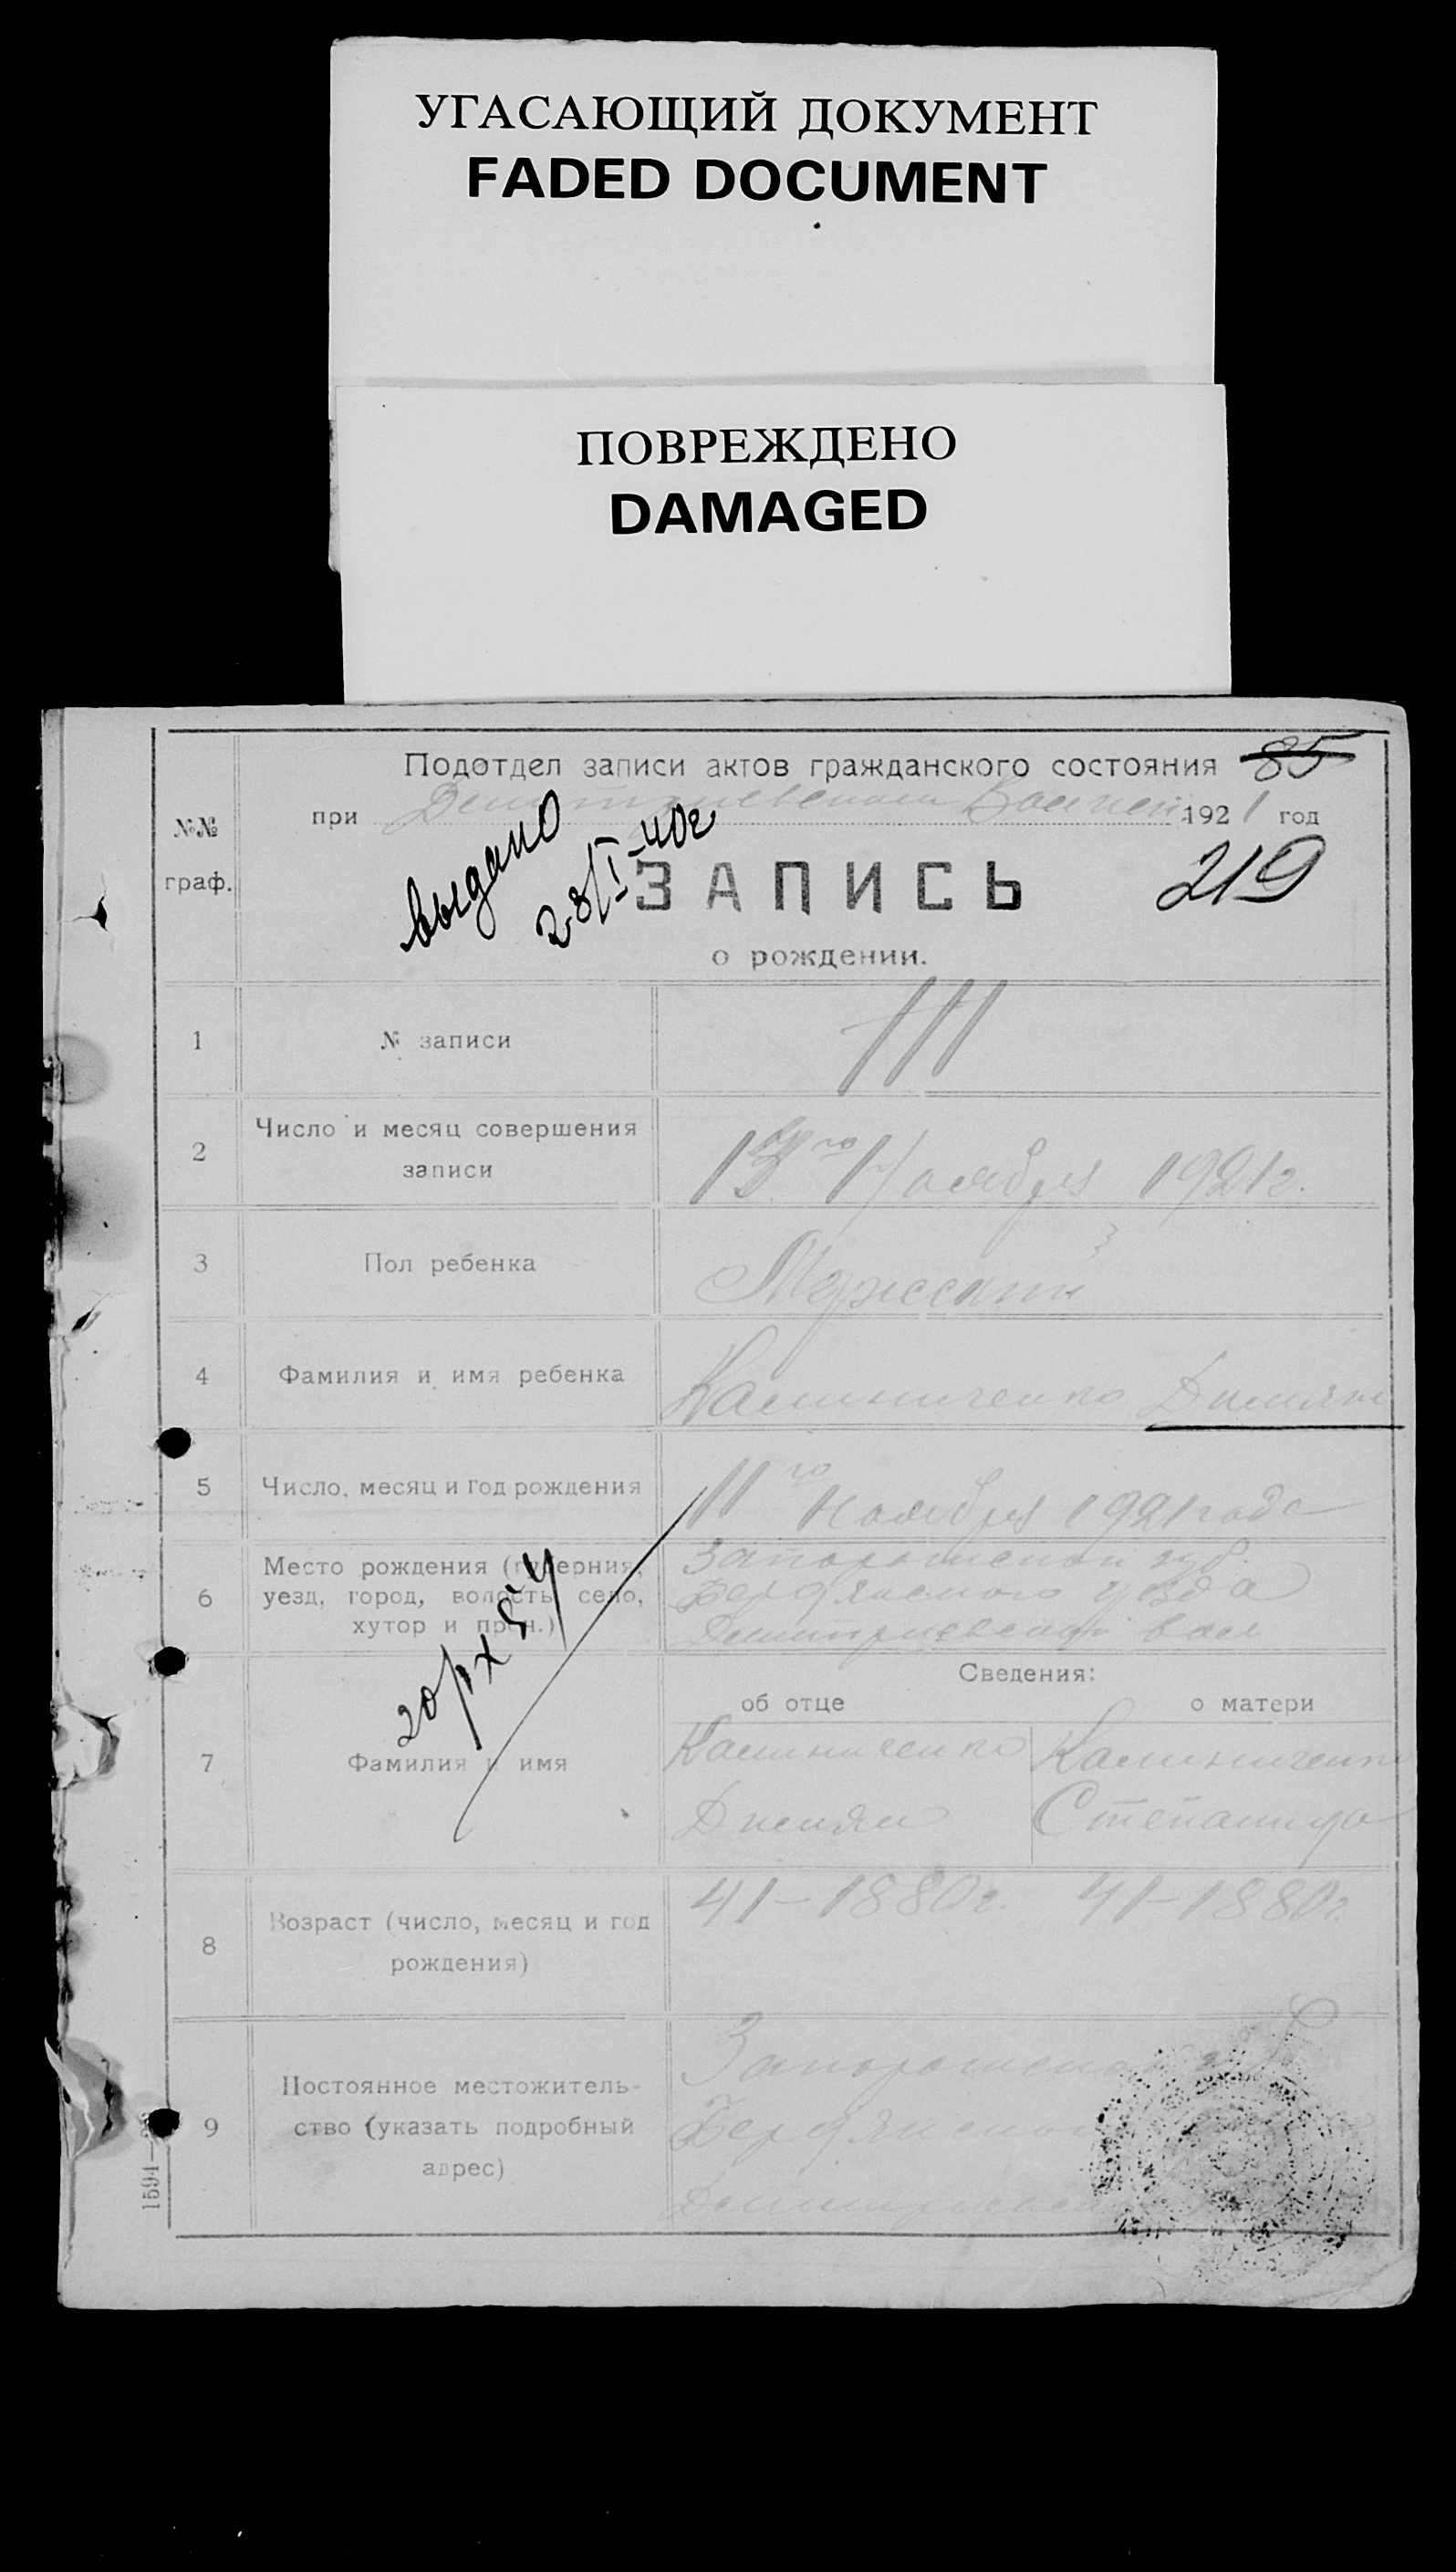 УГАСАЮЩИЙ ДОКУМЕНТ
FADED DOCUMENT
ПОВРЕЖДЕНО
DAMAGED
Подотдел записи актов гражданского состояния 85
при 1921 год
№№
граф.
выдано
28/I-40г
ЗАПИСЬ
219
о рождении.
1 № записи 111
2 Число и месяц совершения
записи
13го Ноября 1921г.
3 Пол ребенка Мужской
4 Фамилия и имя ребенка Калиниченко
5 Число, месяц и год рождения 11го Ноября 1921 года
6 Место рождения (губерния,
уезд, город, волость, село,
хутор и проч.)
Запорожской губ
Бердянского уезда
Дмитриевской вол
20/X 54
Сведения:
об отце о матери
7 Фамилия и имя
Калиниченко Калиниченко
Степанида
8 Возраст (число, месяц и год
рождения)
41-1880г. 41-1880г.
9 Постоянное местожитель-
ство (указать подробный
адрес)
Запорожской
Бердянского
1594—